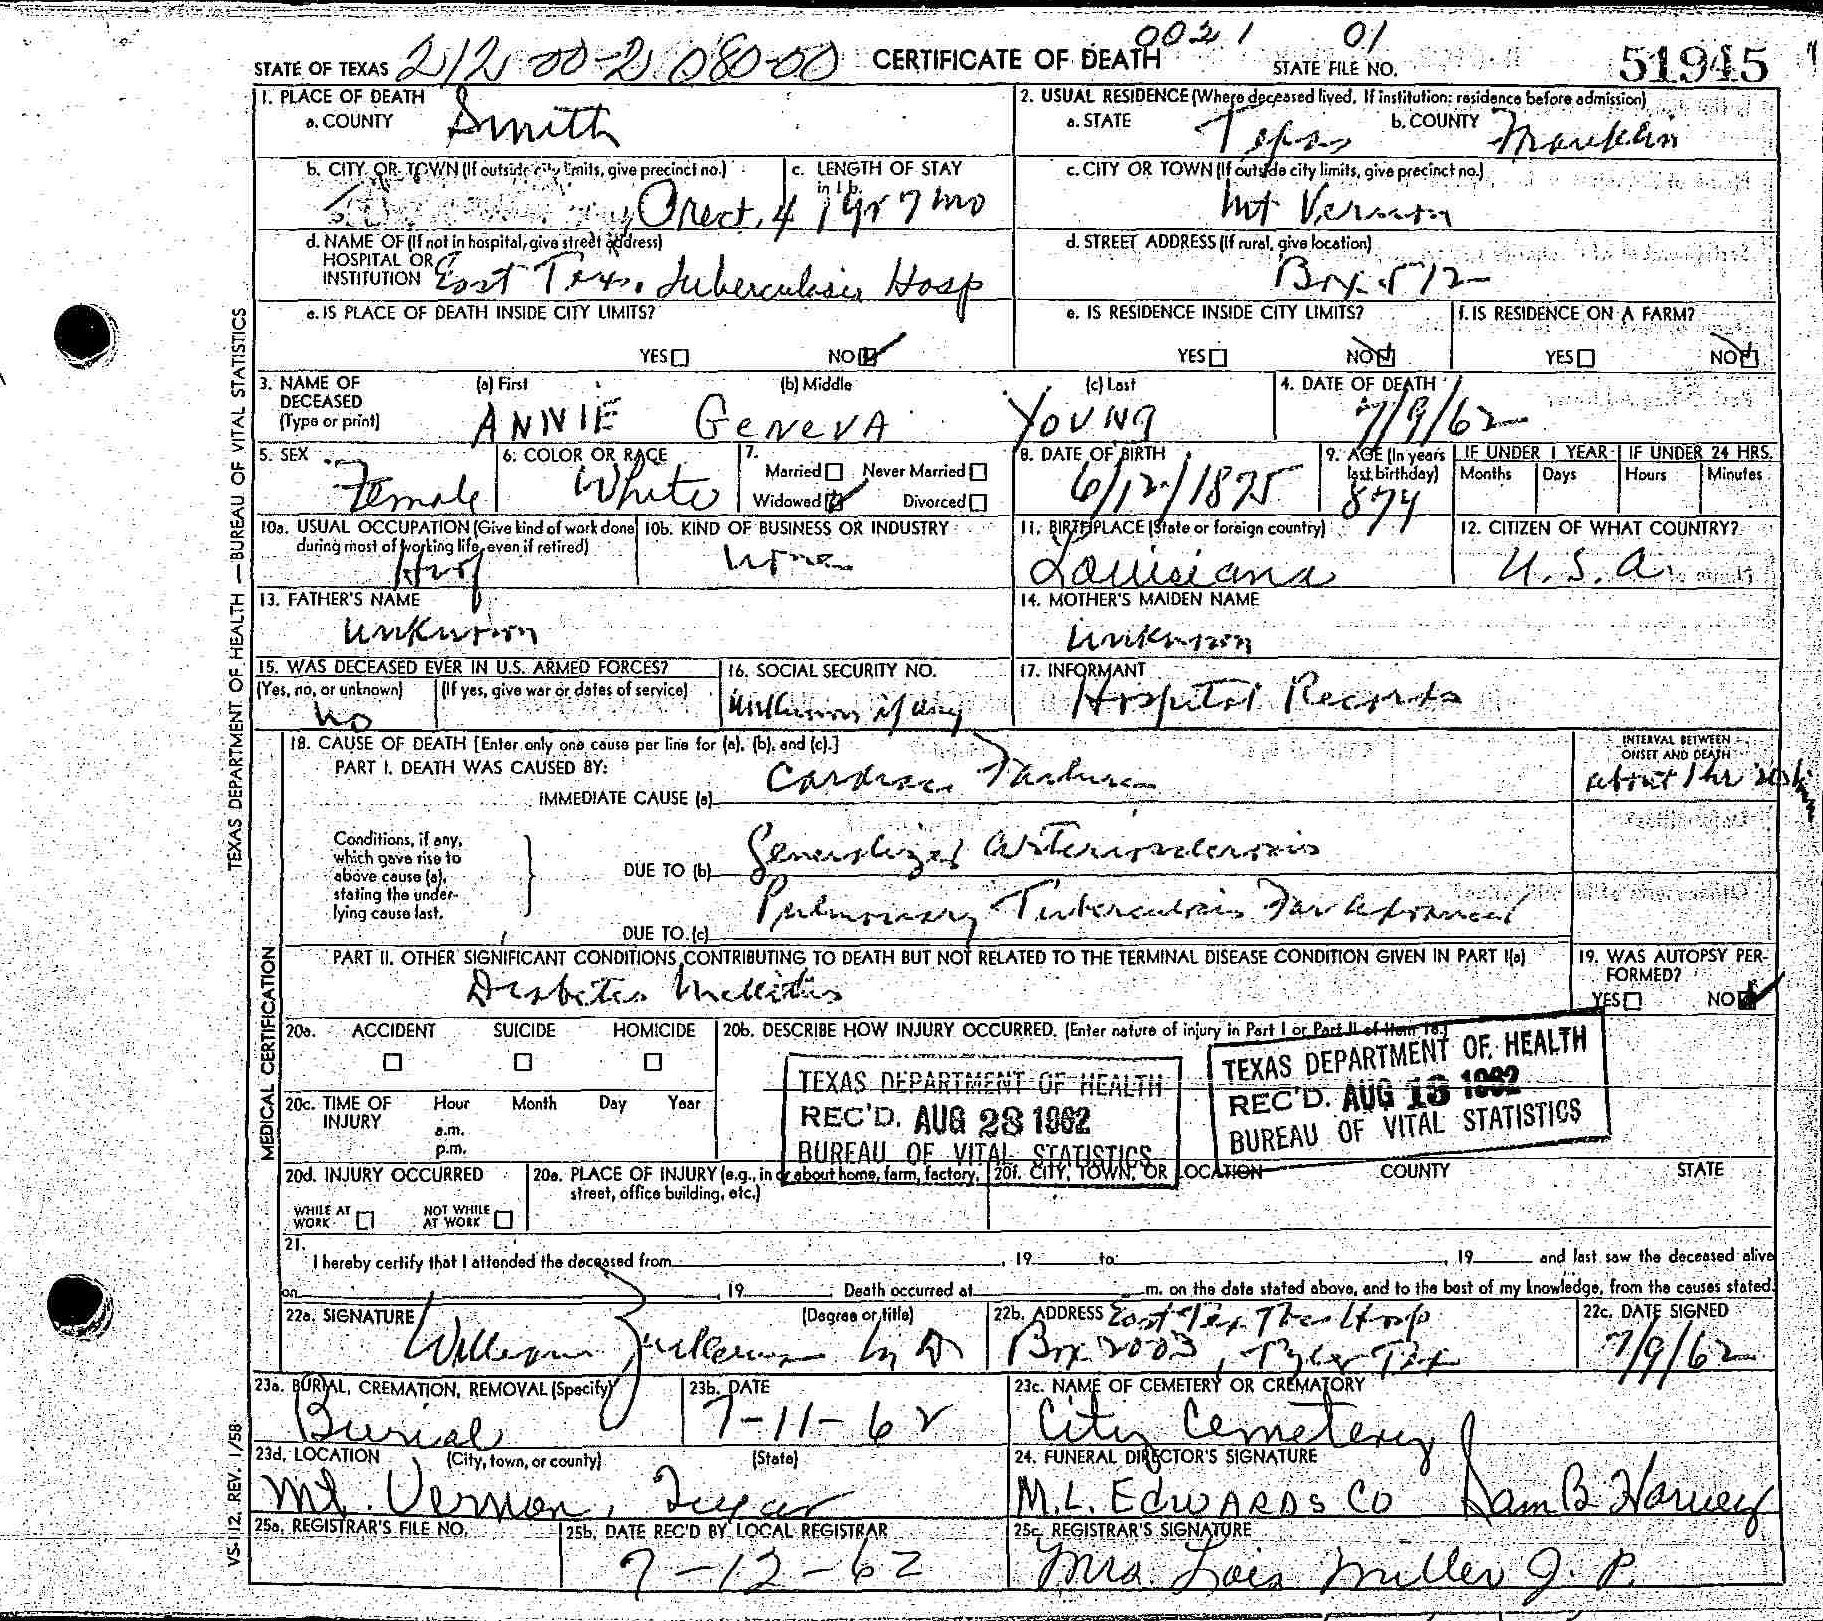 0021 01
STATE OF TEXAS 212 00-2 080-00 CERTIFICATE OF DEATH STATE FILE NO. 51945
1. PLACE OF DEATH
a. COUNTY Smith
2. USUAL RESIDENCE (Where deceased lived. If institution: residence before admission)
a. STATE Texas b. COUNTY Franklin
b. CITY OR TOWN (If outside city limits, give precinct no.) Prect. 4
c. LENGTH OF STAY in 1b. 1 yr 7 mo
c. CITY OR TOWN (If outside city limits, give precinct no.)
Mt Vernon
d. NAME OF (If not in hospital, give street address)
HOSPITAL OR
INSTITUTION East Tex. Tuberculosis Hosp
d. STREET ADDRESS (If rural, give location)
Box 512
e. IS PLACE OF DEATH INSIDE CITY LIMITS?
YES NO
e. IS RESIDENCE INSIDE CITY LIMITS?
YES NO
f. IS RESIDENCE ON A FARM?
YES NO
3. NAME OF
DECEASED
(Type or print)
(a) First (b) Middle (c) Last
ANNIE GENEVA YOUNG
4. DATE OF DEATH
7/9/62
5. SEX
Female
6. COLOR OR RACE
White
7.
Married Never Married
Widowed Divorced
8. DATE OF BIRTH
6/12/1875
9. AGE (In years
last birthday)
IF UNDER 1 YEAR
Months Days
IF UNDER 24 HRS.
Hours Minutes
10a. USUAL OCCUPATION (Give kind of work done
during most of working life, even if retired)
10b. KIND OF BUSINESS OR INDUSTRY
none
11. BIRTHPLACE (State or foreign country)
Louisiana
12. CITIZEN OF WHAT COUNTRY?
U.S.A.
13. FATHER'S NAME
unknown
14. MOTHER'S MAIDEN NAME
unknown
15. WAS DECEASED EVER IN U.S. ARMED FORCES?
(Yes, no, or unknown) (If yes, give war or dates of service)
no
16. SOCIAL SECURITY NO.
unknown if any
17. INFORMANT
Hospital Records
18. CAUSE OF DEATH [Enter only one cause per line for (a), (b), and (c).]
PART I. DEATH WAS CAUSED BY:
IMMEDIATE CAUSE (a) Cardiac Failure
INTERVAL BETWEEN
ONSET AND DEATH
about 1 hr
Conditions, if any,
which gave rise to
above cause (a),
stating the under-
lying cause last.
DUE TO (b) Generalized Arteriosclerosis
DUE TO (c) Pulmonary Tuberculosis Far Advanced
PART II. OTHER SIGNIFICANT CONDITIONS CONTRIBUTING TO DEATH BUT NOT RELATED TO THE TERMINAL DISEASE CONDITION GIVEN IN PART I(a)
Diabetes Mellitus
19. WAS AUTOPSY PER-
FORMED?
YES NO
20a. ACCIDENT SUICIDE HOMICIDE
20b. DESCRIBE HOW INJURY OCCURRED. (Enter nature of injury in Part I or Part II of Item 18.)
TEXAS DEPARTMENT OF HEALTH
REC'D. AUG 28 1962
BUREAU OF VITAL STATISTICS
TEXAS DEPARTMENT OF HEALTH
REC'D. AUG 13 1962
BUREAU OF VITAL STATISTICS
20c. TIME OF
INJURY
Hour Month Day Year
a.m.
p.m.
20d. INJURY OCCURRED
WHILE AT
WORK
NOT WHILE
AT WORK
20e. PLACE OF INJURY (e.g., in or about home, farm, factory,
street, office building, etc.)
20f. CITY, TOWN, OR LOCATION COUNTY STATE
21.
I hereby certify that I attended the deceased from , 19 to , 19 and last saw the deceased alive
on , 19 . Death occurred at m. on the date stated above, and to the best of my knowledge, from the causes stated.
22a. SIGNATURE (Degree or title)
William M D
22b. ADDRESS East Tex Hosp
Box 2003, Tyler Tex
22c. DATE SIGNED
7/9/62
23a. BURIAL, CREMATION, REMOVAL (Specify)
Burial
23b. DATE
7-11-62
23c. NAME OF CEMETERY OR CREMATORY
City Cemetery
23d. LOCATION (City, town, or county) (State)
Mt. Vernon, Texas
24. FUNERAL DIRECTOR'S SIGNATURE
M.L. EDWARDS CO Sam B. Harvey
25a. REGISTRAR'S FILE NO.
25b. DATE REC'D BY LOCAL REGISTRAR
7-12-62
25c. REGISTRAR'S SIGNATURE
Mrs. Lois Miller J. P.
TEXAS DEPARTMENT OF HEALTH — BUREAU OF VITAL STATISTICS
MEDICAL CERTIFICATION
VS-12, REV. 1/58